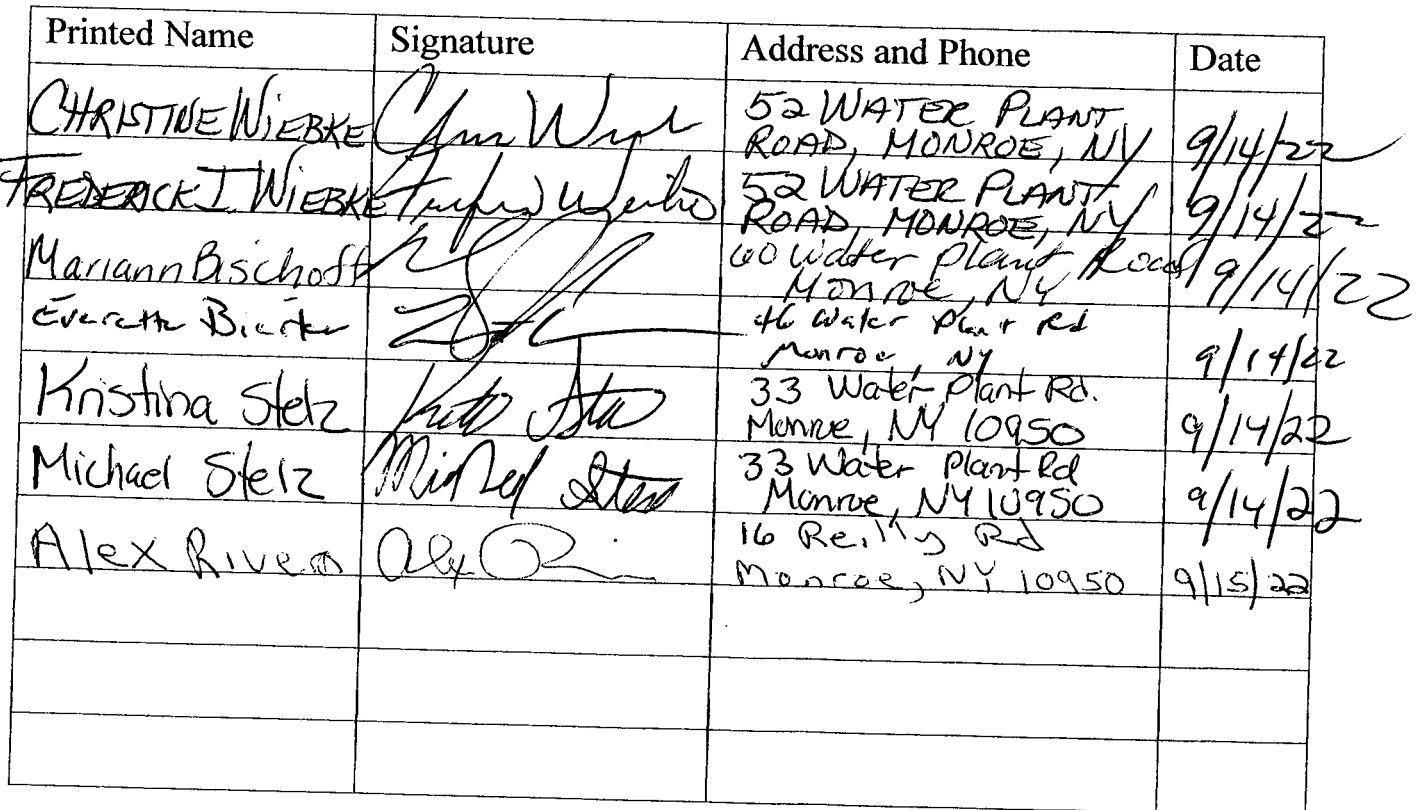 Printed Name Signature Address and Phone Date
CHRISTINE WIEBKE 52 WATER PLANT
ROAD, MONROE, NY 9/14/22
FREDERICK I. WIEBKE 52 WATER PLANT
ROAD, MONROE, NY 9/14/22
Mariann Bischoff 60 Water Plant Road
Monroe, NY 9/14/22
Everette 46 Water Plant Rd
Monroe, NY 9/14/22
Kristina Stelz 33 Water Plant Rd.
Monroe, NY 10950 9/14/22
Michael Stelz 33 Water Plant Rd
Monroe, NY 10950 9/14/22
Alex Rivera 16 Reilly Rd
Monroe, NY 10950 9/15/22